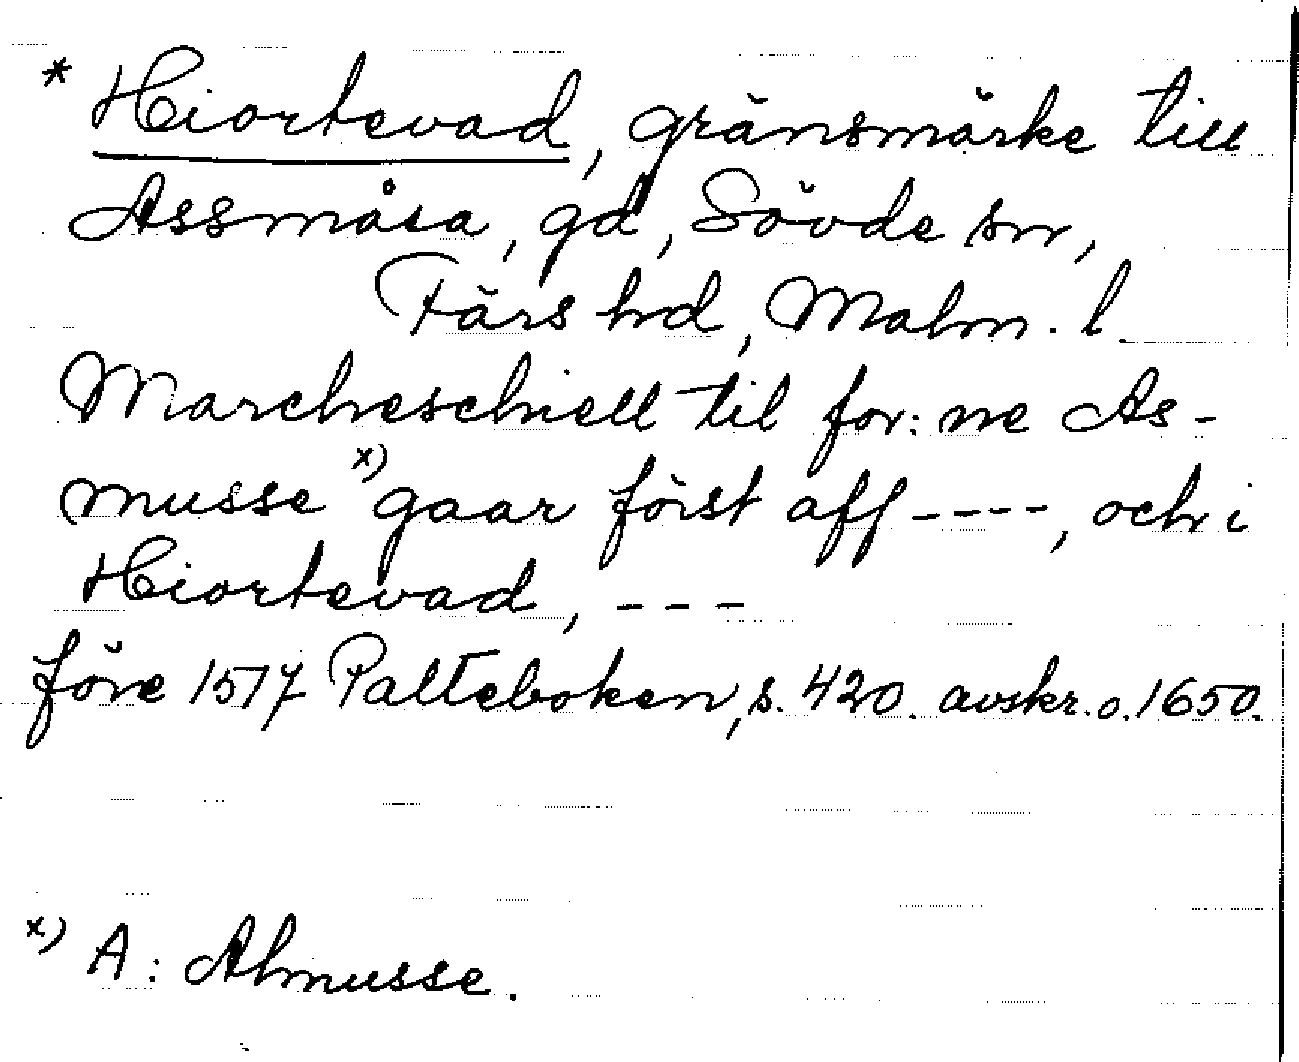 * Hiortevad, gränsmärke till
Assmåsa, gd, Sövde sn,
Färs hd, Malm. l.
Marcheschiell til for: ne As-
musse x) gaar först aff ----, och i
Hiortevad, ---
före 1517 Palteboken, s. 420. avskr. o. 1650.
x) A: Ahmusse.